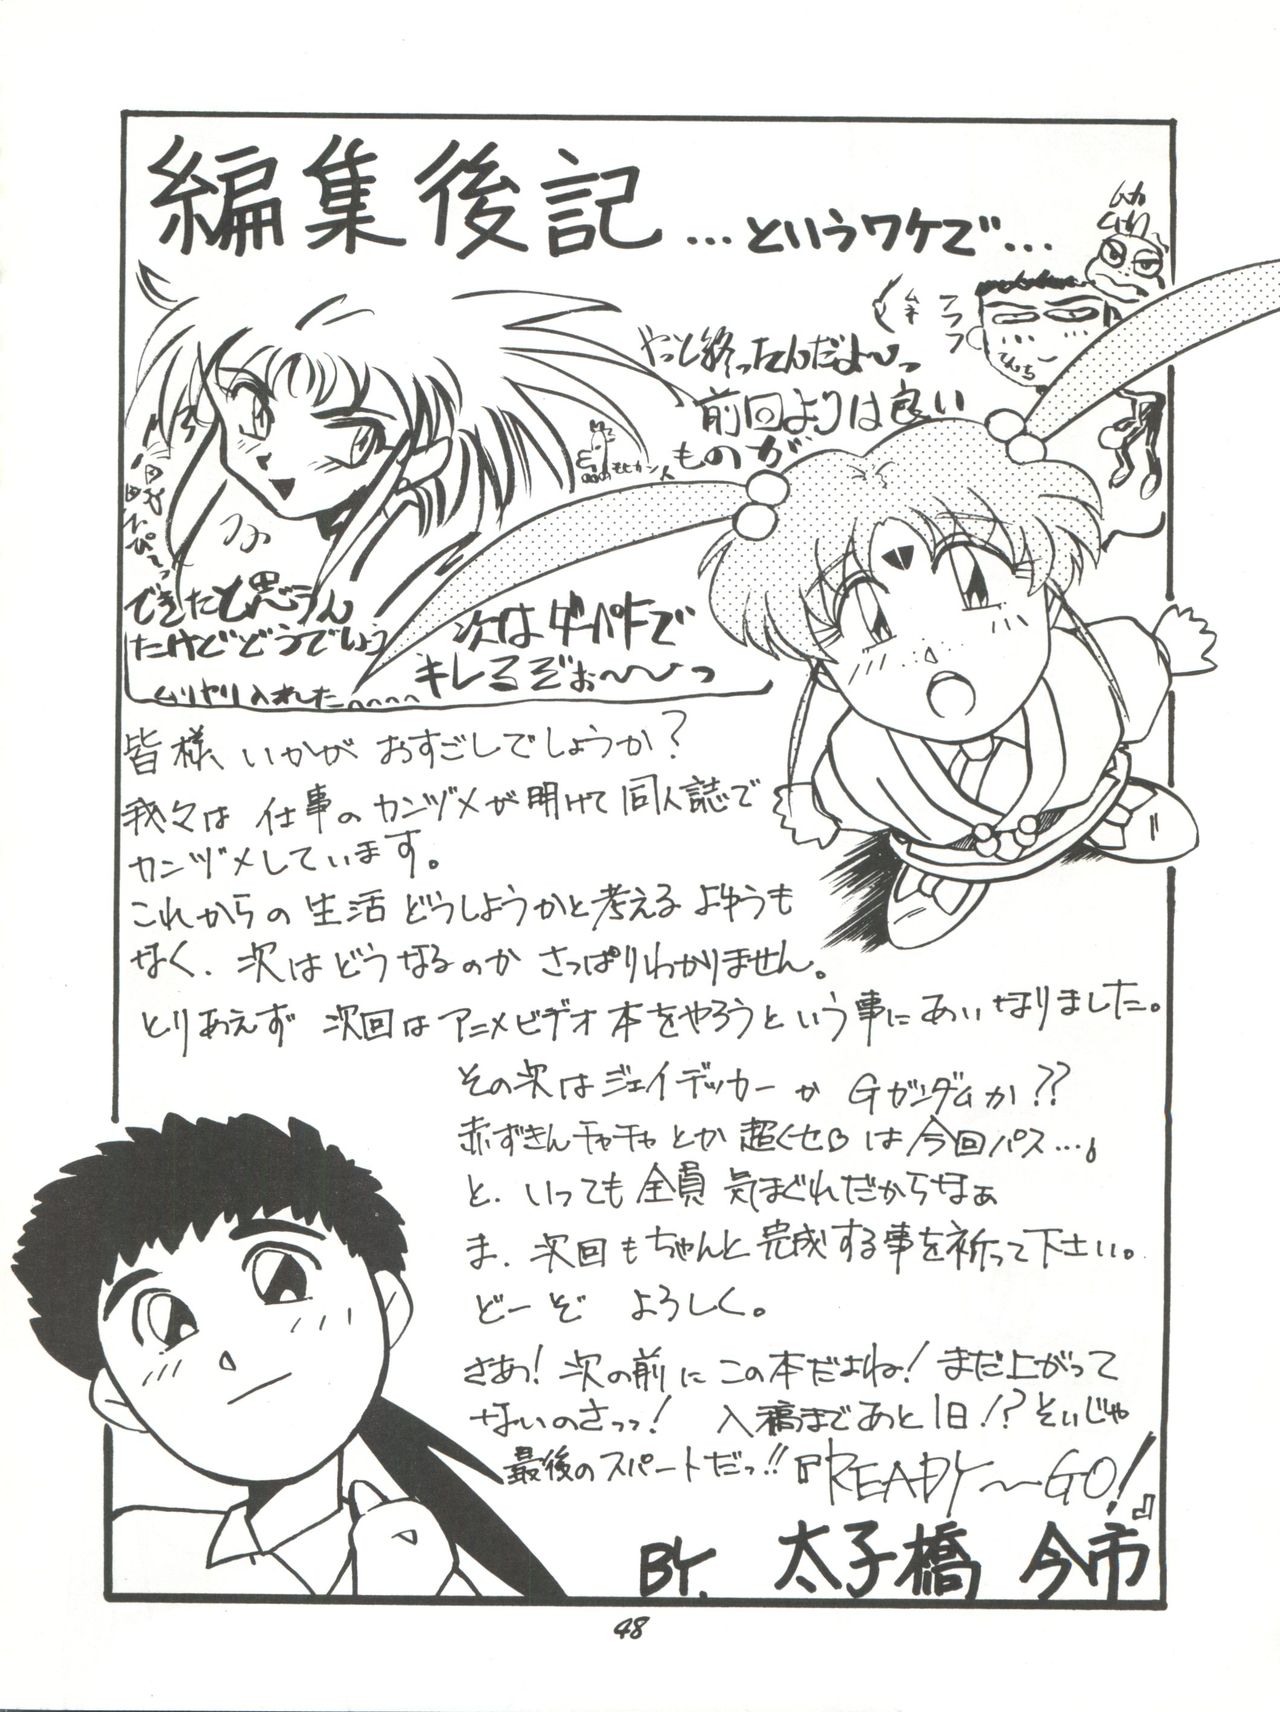 編集後記
…というワケで…
やっと終ったんだよ〜っ
前回よりは良い
ものが
できたと思うん
だけどどうでしょう
ムリヤリ入れした
次はダーパトで
キレるぞぉ〜〜っ
フフフ
モヒカン人
皆様、いかがおすごしでしょうか?
我々は仕事のカンヅメが明けて同人誌で
カンヅメしています。
これからの生活どうしようかと考えるよゆうも
なく、次はどうなるのかさっぱりわかりません。
とりあえず次回はアニメビデオ本をやろうという事にあいなりました。
その次はジェイデッカーかGガンダムか??
赤ずきんチャチャとか超くせBは今回パス…。
と、いっても全員気まぐれだからなぁ
ま、次回もちゃんと完成する事を祈って下さい。
どーぞよろしく。
さあ!次の前にこの本だよね!まだ上がって
ないのさっっ!入稿まであと1日!?そいじゃ
最後のスパートだっ!!『READY〜GO!』
BY. 太子橋 今市
48